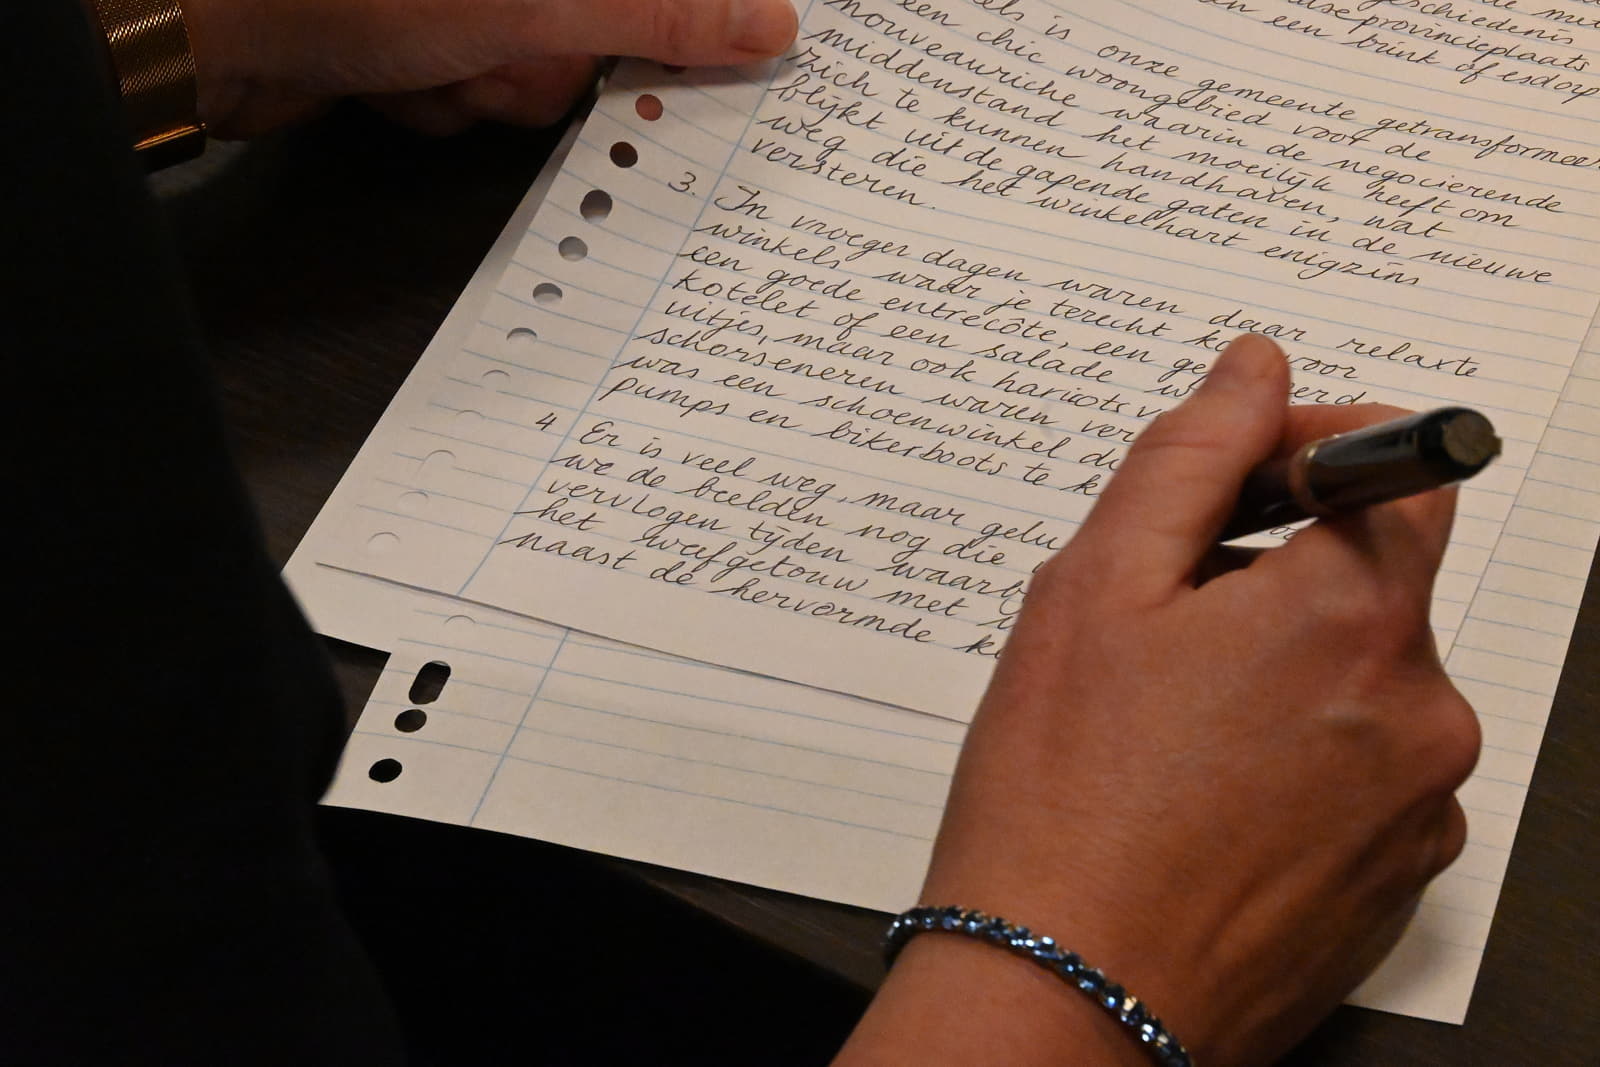 geschiedenis
provincieplaats
een brink of esdorp
is onze gemeente getransformeer
een chic woongebied voor de
nouveauriche waarin de negocierende
middenstand het moeilijk heeft om
zich te kunnen handhaven, wat
blijkt uit de gapende gaten in de nieuwe
weg die het winkelhart enigzins
versteren.
3. In vroeger dagen waren daar relaxte
winkels waar je terecht voor
een goede entrecôte, een
kotelet of een salade
uitjes, maar ook haricots
schorseneren waren
was een schoenwinkel
pumps en bikerboots te
4 Er is veel weg, maar
we de beelden nog die
vervlogen tijden
het weefgetouw met
naast de hervormde